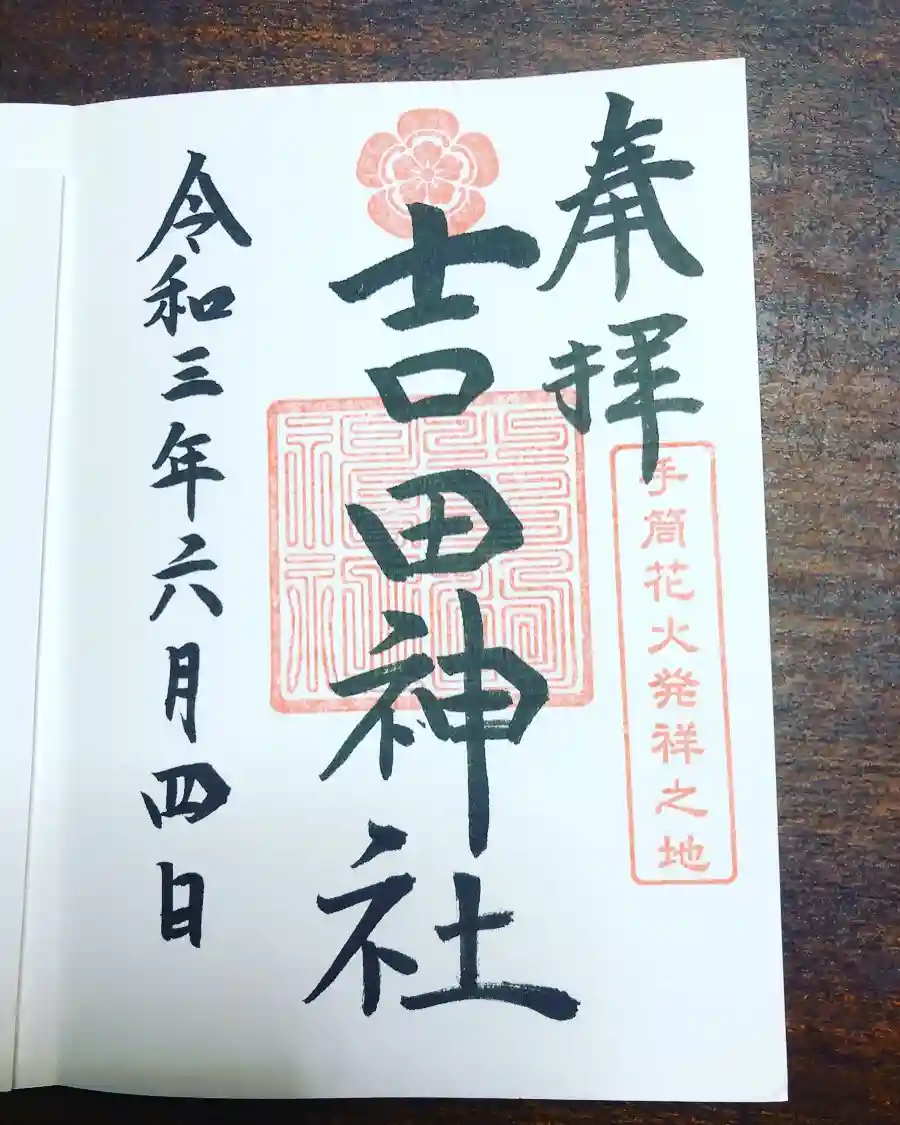 奉拝
手筒花火発祥之地
吉田神社
令和三年六月四日